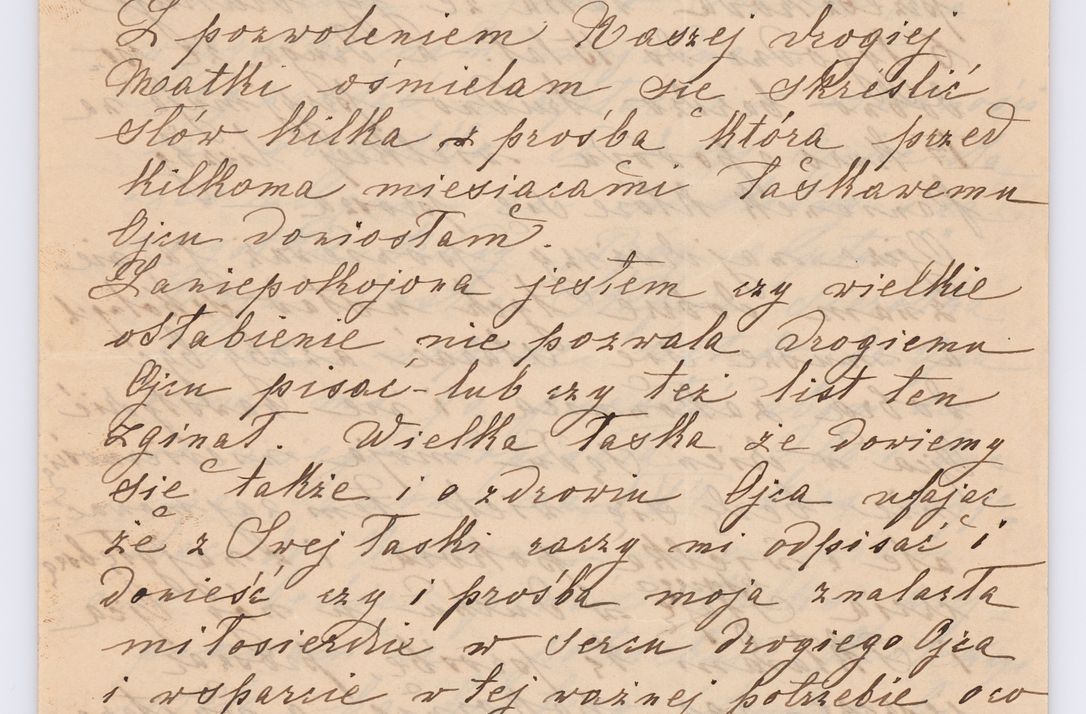 Z pozwoleniem Naszej drogiej
Matki ośmielam się skreślić
słów kilka z prośbą którą przed
kilkoma miesiącami łaskawemu
Ojcu doniosłam.
Zaniepokojona jestem czy wielkie
osłabienie nie pozwala drogiemu
Ojcu pisać - lub czy też list ten
zginął. Wielka łaska że dowiemy
się także i o zdrowiu Ojca ufając
że z Swej łaski raczy mi odpisać i
donieść czy i prośba moja znalazła
miłosierdzie w sercu drogiego Ojca
i wsparcie w tej ważnej potrzebie oco